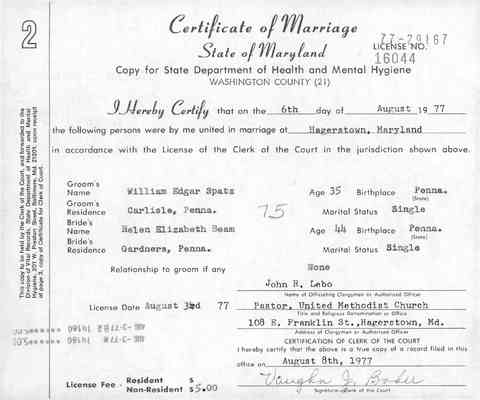 2
Certificate of Marriage
State of Maryland
77-29167
LICENSE NO.
16044
Copy for State Department of Health and Mental Hygiene
WASHINGTON COUNTY (21)
I Hereby Certify that on the 6th day of August 1977
the following persons were by me united in marriage at Hagerstown, Maryland
in accordance with the License of the Clerk of the Court in the jurisdiction shown above.
Groom's Name William Edgar Spatz Age 35 Birthplace Penna.
(State)
Groom's Residence Carlisle, Penna. 75 Marital Status Single
Bride's Name Helen Elizabeth Beam Age 44 Birthplace Penna.
(State)
Bride's Residence Gardners, Penna. Marital Status Single
Relationship to groom if any None
John R. Lebo
Name of Officiating Clergyman or Authorized Officer
License Date August 3rd 77 Pastor, United Methodist Church
Title and Religious Denomination or Office
108 E. Franklin St., Hagerstown, Md.
Address of Clergyman or Authorized Officer
CERTIFICATION OF CLERK OF THE COURT
I hereby certify that the above is a true copy of a record filed in this
office on August 8th, 1977
License Fee - Resident $
Non-Resident $5.00
Vaughn J. Baker
Signature-Clerk of the Court
This copy to be held by the Clerk of the Court, and forwarded to the
Division of Vital Records, State Department of Health and Mental
Hygiene, 201 W. Preston Street, Baltimore, Md. 21201, upon receipt
of page 3, copy of Certificate for Clerk of Court.